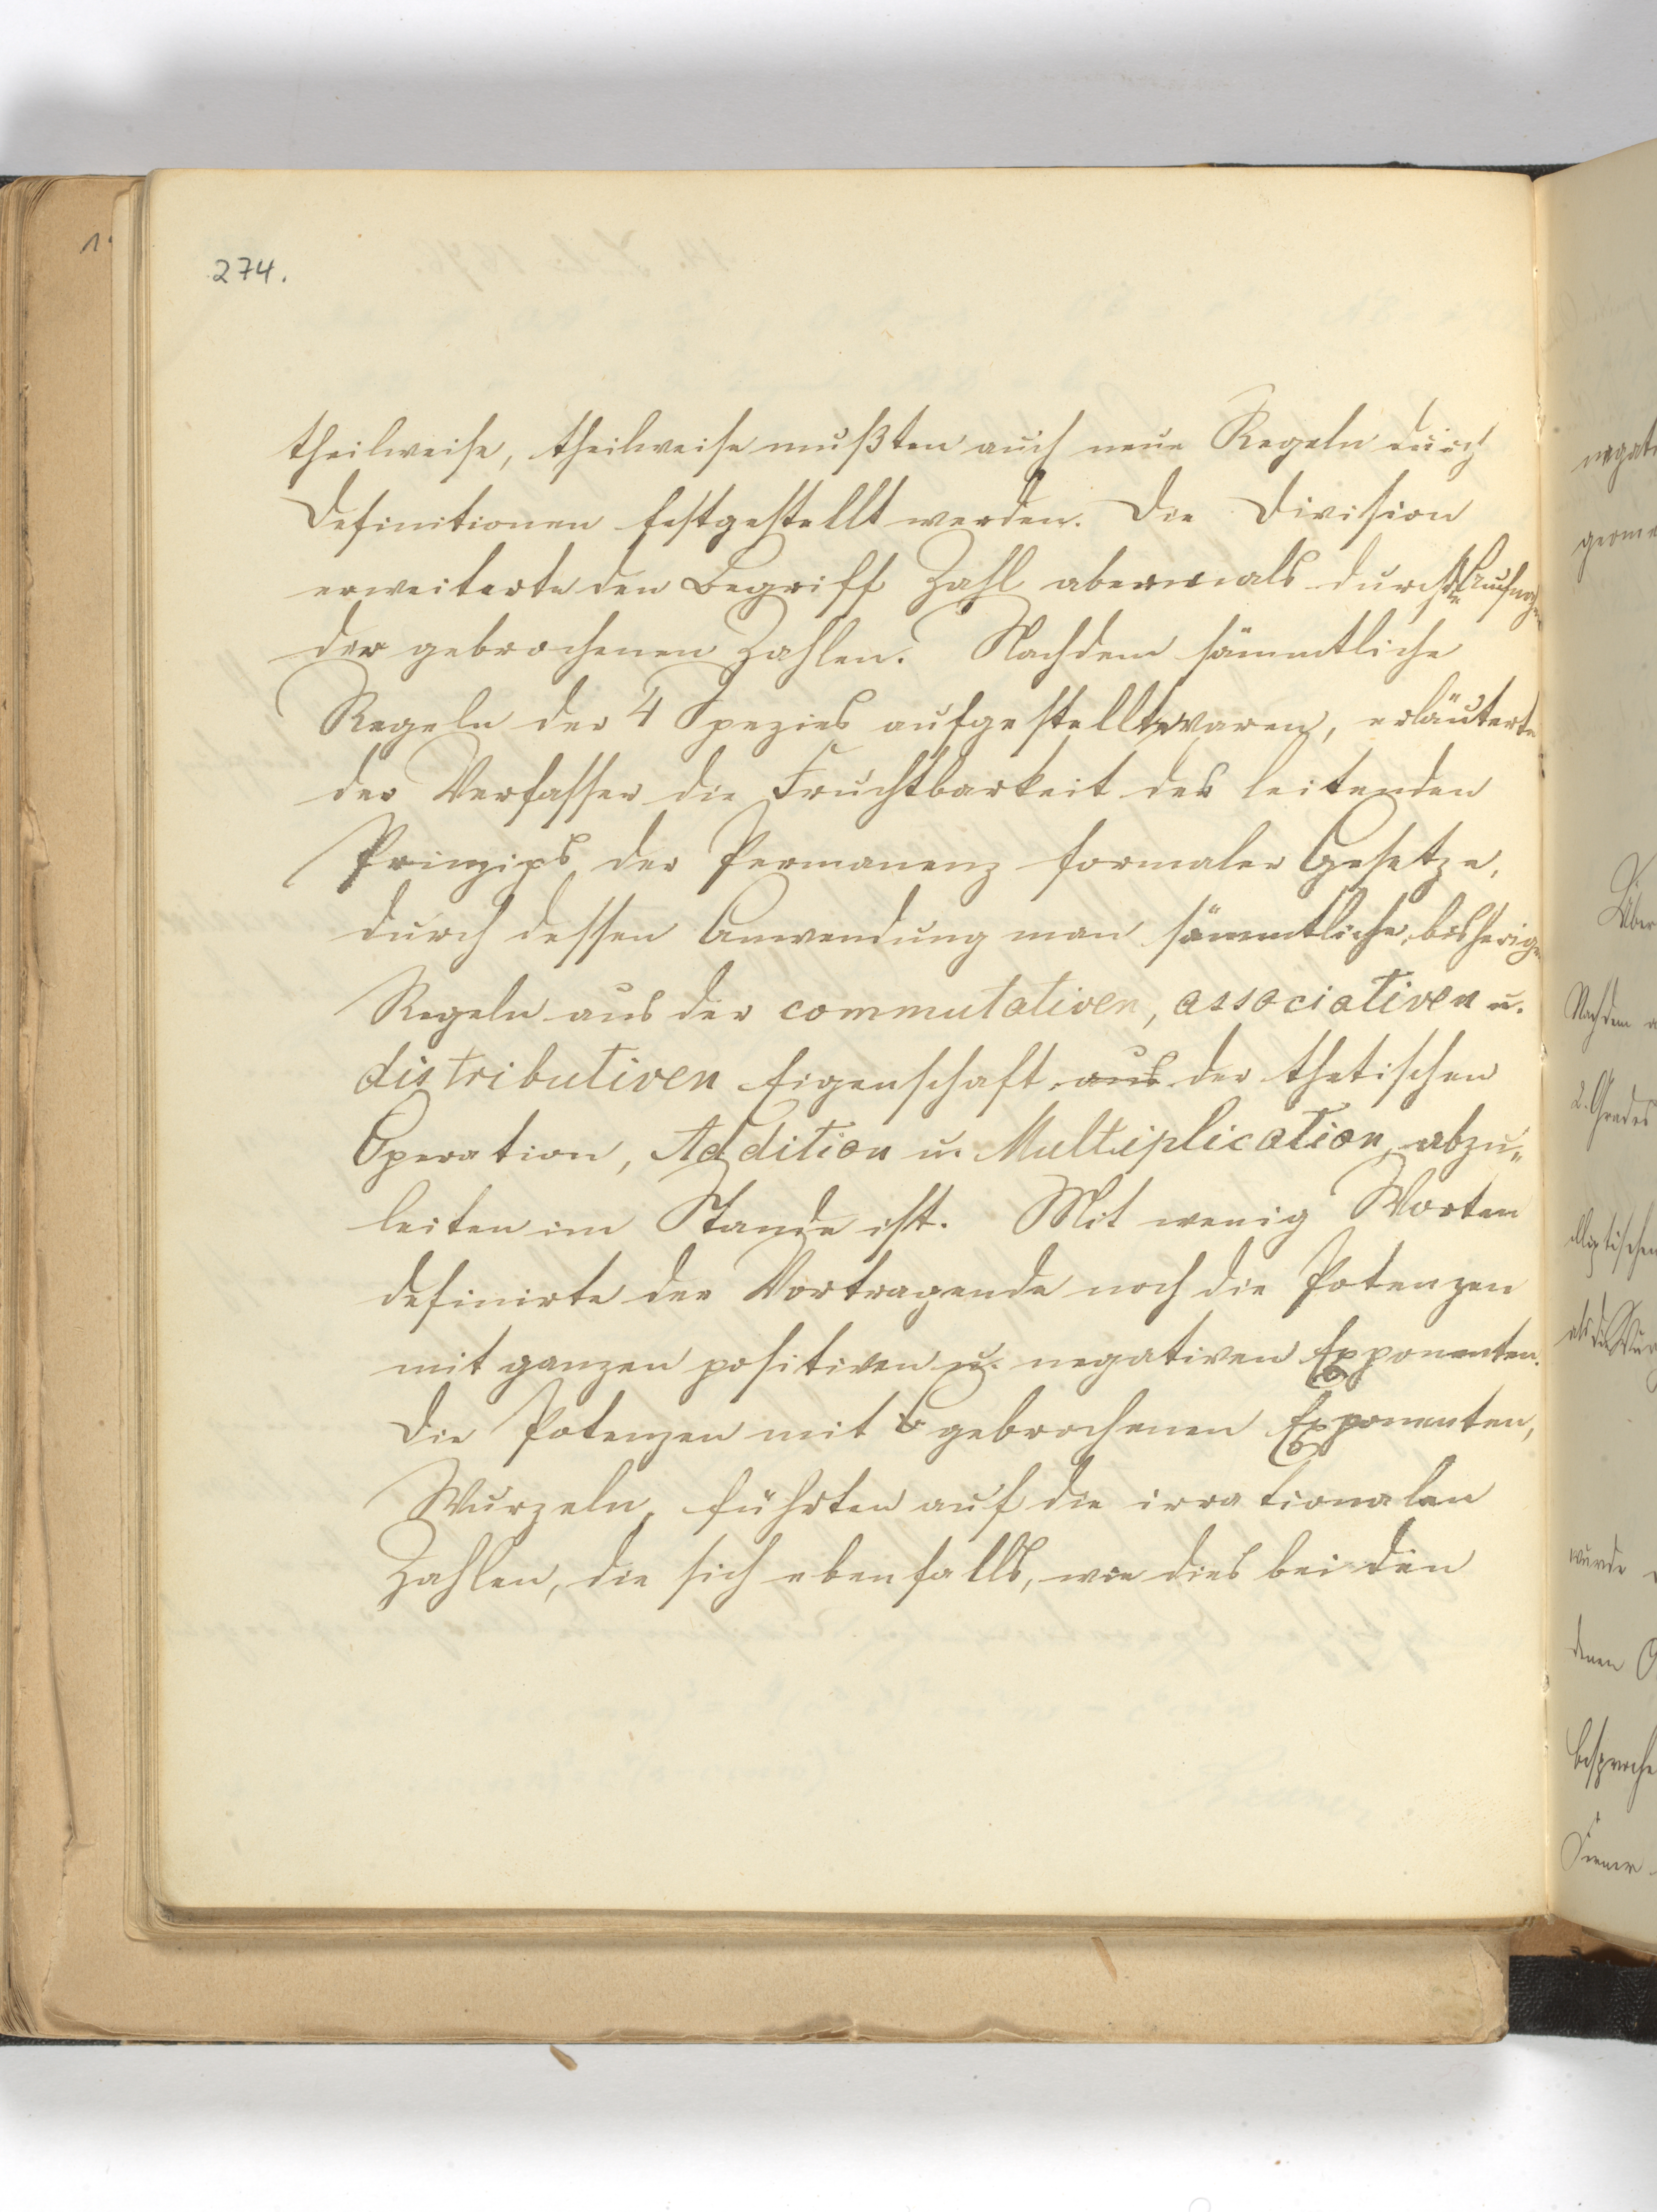 274.
theilweise, theilweise mußten auch neue Regeln durch
Definitionen festgestellt werden. Die Division
erweiterte den Begriff Zahl abermals durch die Aufnahme
der gebrochenen Zahlen. Nachdem sämmtliche
Regeln der 4 Spezies aufgestellt waren, erläuterte
der Verfasser die Fruchtbarkeit des leitenden
Prinzips der Permanenz formaler Gesetze,
durch dessen Anwendung man sämmtliche, bisherigen
Regeln aus der commutativen, associativen u.
distributiven Eigenschaft aus der thetischen
Operation, Addition u. Multiplication, abzu„
leiten im Stande ist. Mit wenig Worten
definirte der Vortragende noch die Potenzen
mit ganzen positiven u. negativen Exponenten.
Die Potenzen mit gebrochenen Exponenten,
Wurzeln, führten auf die irrationalen
Zahlen, die sich ebenfalls, wie dies bei den
negati
geome
Über
Nachdem
2. Grades
elliptischen
als die Wur
wurde
denen
besproche
Ferner